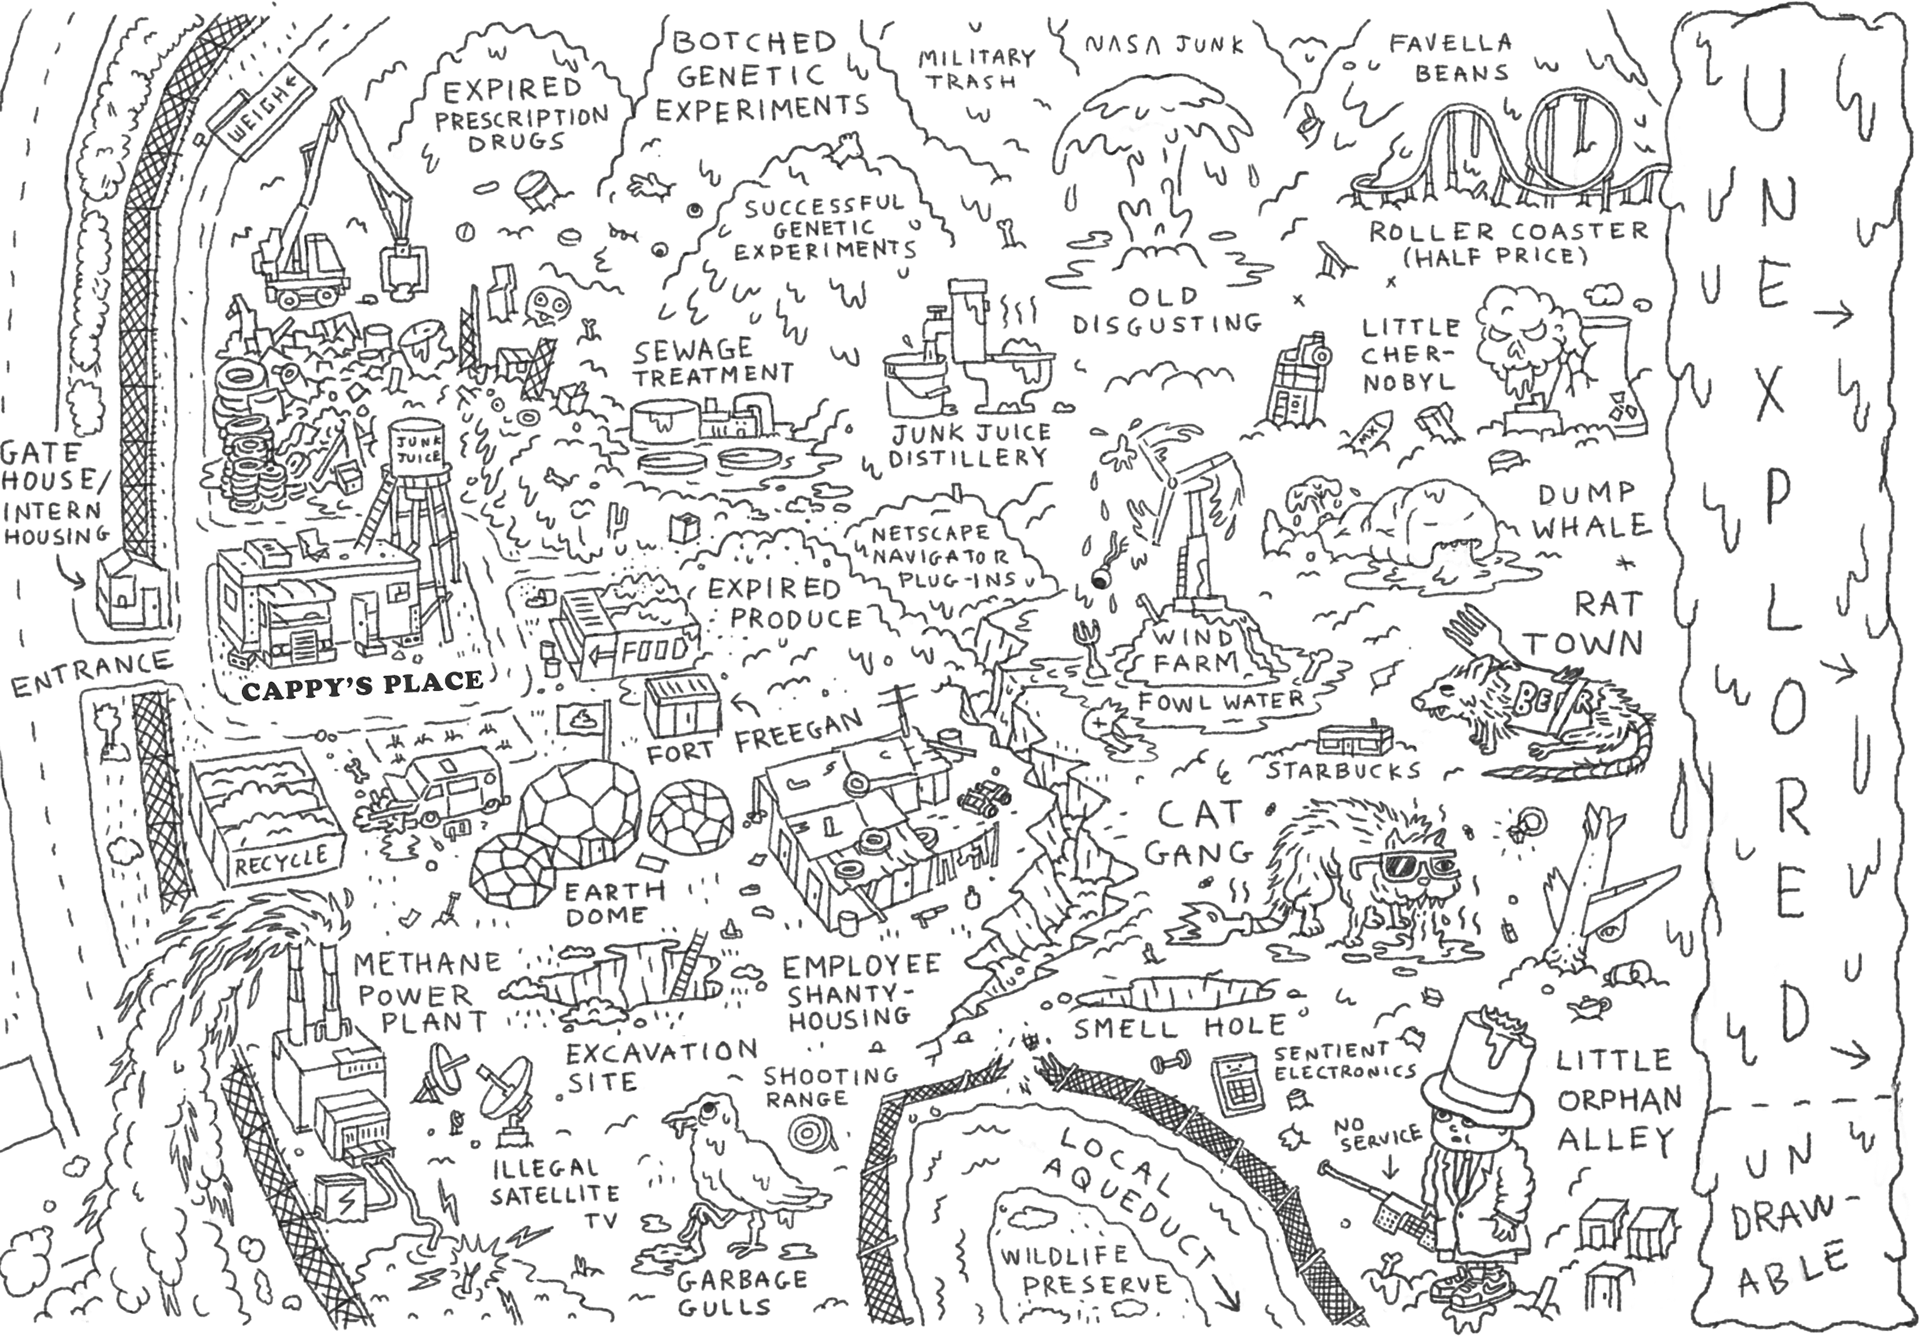 WEIGH
EXPIRED
PRESCRIPTION
DRUGS
BOTCHED
GENETIC
EXPERIMENTS
MILITARY
TRASH
NASA JUNK
FAVELLA
BEANS
SUCCESSFUL
GENETIC
EXPERIMENTS
ROLLER COASTER
(HALF PRICE)
OLD
DISGUSTING
LITTLE
CHER-
NOBYL
SEWAGE
TREATMENT
JUNK JUICE
DISTILLERY
MX1
JUNK
JUICE
GATE
HOUSE/
INTERN
HOUSING
ENTRANCE
CAPPY'S PLACE
NETSCAPE
NAVIGATOR
PLUG-INS
EXPIRED
PRODUCE
FOOD
DUMP
WHALE
WIND
FARM
FOWL WATER
RAT
TOWN
BEER
FORT FREEGAN
STARBUCKS
RECYCLE
EARTH
DOME
CAT
GANG
METHANE
POWER
PLANT
EMPLOYEE
SHANTY-
HOUSING
EXCAVATION
SITE
SMELL HOLE
SHOOTING
RANGE
SENTIENT
ELECTRONICS
NO
SERVICE
LITTLE
ORPHAN
ALLEY
ILLEGAL
SATELLITE
TV
GARBAGE
GULLS
LOCAL
AQUEDUCT
WILDLIFE
PRESERVE
UNEXPLORED
UN
DRAW-
ABLE